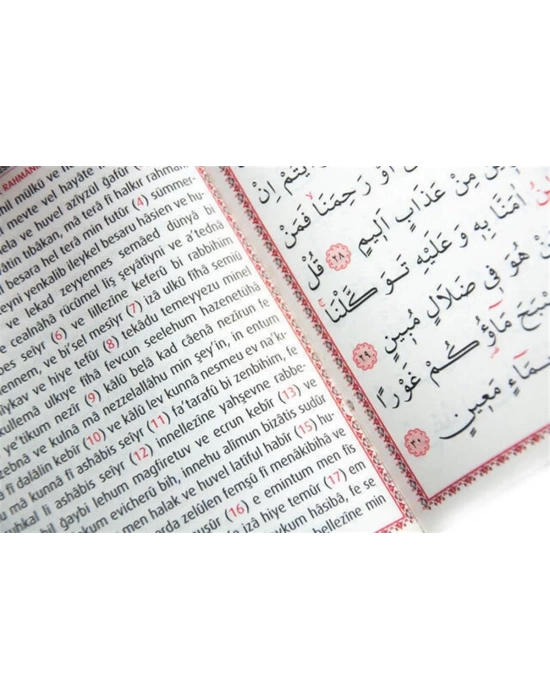 RAHMAN
mil mülkü ve h
meyte vel hayâte
ela ve huvel azîyzül gafûr
tıbâkan, mâ terâ fî halkır rahmâni
besara hel terâ min futûr (4) sümmer-
yenkalib ileykel besaru hâsien ve hu-
ve lekad zeyyennes semâed dünyâ bi
cealnâhâ rücûmel liş şeyâtîyni ve a'tednâ
seıyr (6) ve lillezîne keferû bi rabbihim
ennem, ve bi'sel mesîyr (7) izâ ulkû fîhâ semiû
ve hiye tefûr (8) tekâdu temeyyezu minel
kullemâ ulkıye fîhâ fevcun seelehum hazenetühâ
e'tikum nezîr (9) kâlû belâ kad câenâ nezîrun fe
zebnâ ve kulnâ mâ nezzelallâhu min şey'in, in entum
fî dalâlin kebîr (10) ve kâlû lev kunnâ nesmeu ev na'kı-
mâ kunnâ fî ashâbis seıyr (11) fa'tarafû bi zenbihim, fe
uhkal li ashâbis seıyr (12) innellezîne yahşevne rabbe-
bil ğaybi lehum mağfiretuv ve ecrun kebîr (13) ve
kum evicherû bih, innehu alîmun bizâtis sudûr
men halak ve huvel latîful habîr (15) hu-
arda zelûlen femşû fî menâkibihâ ve
nuşûr (16) e emintum men fis
izâ hiye temûr (17) em
aykum hâsıbâ, fe se
bellezîne min
اَوْ رَحِمَنَا فَمَنْ
مِنْ عَذَابٍ اَلِيمٍ ٢٨ قُلْ
اٰمَنَّا بِهٖ وَعَلَيْهِ تَوَكَّلْنَا
هُوَ فٖى ضَلَالٍ مُبٖينٍ ٢٩
مَاؤُكُمْ غَوْرًا
مَعٖينٍ ٣٠